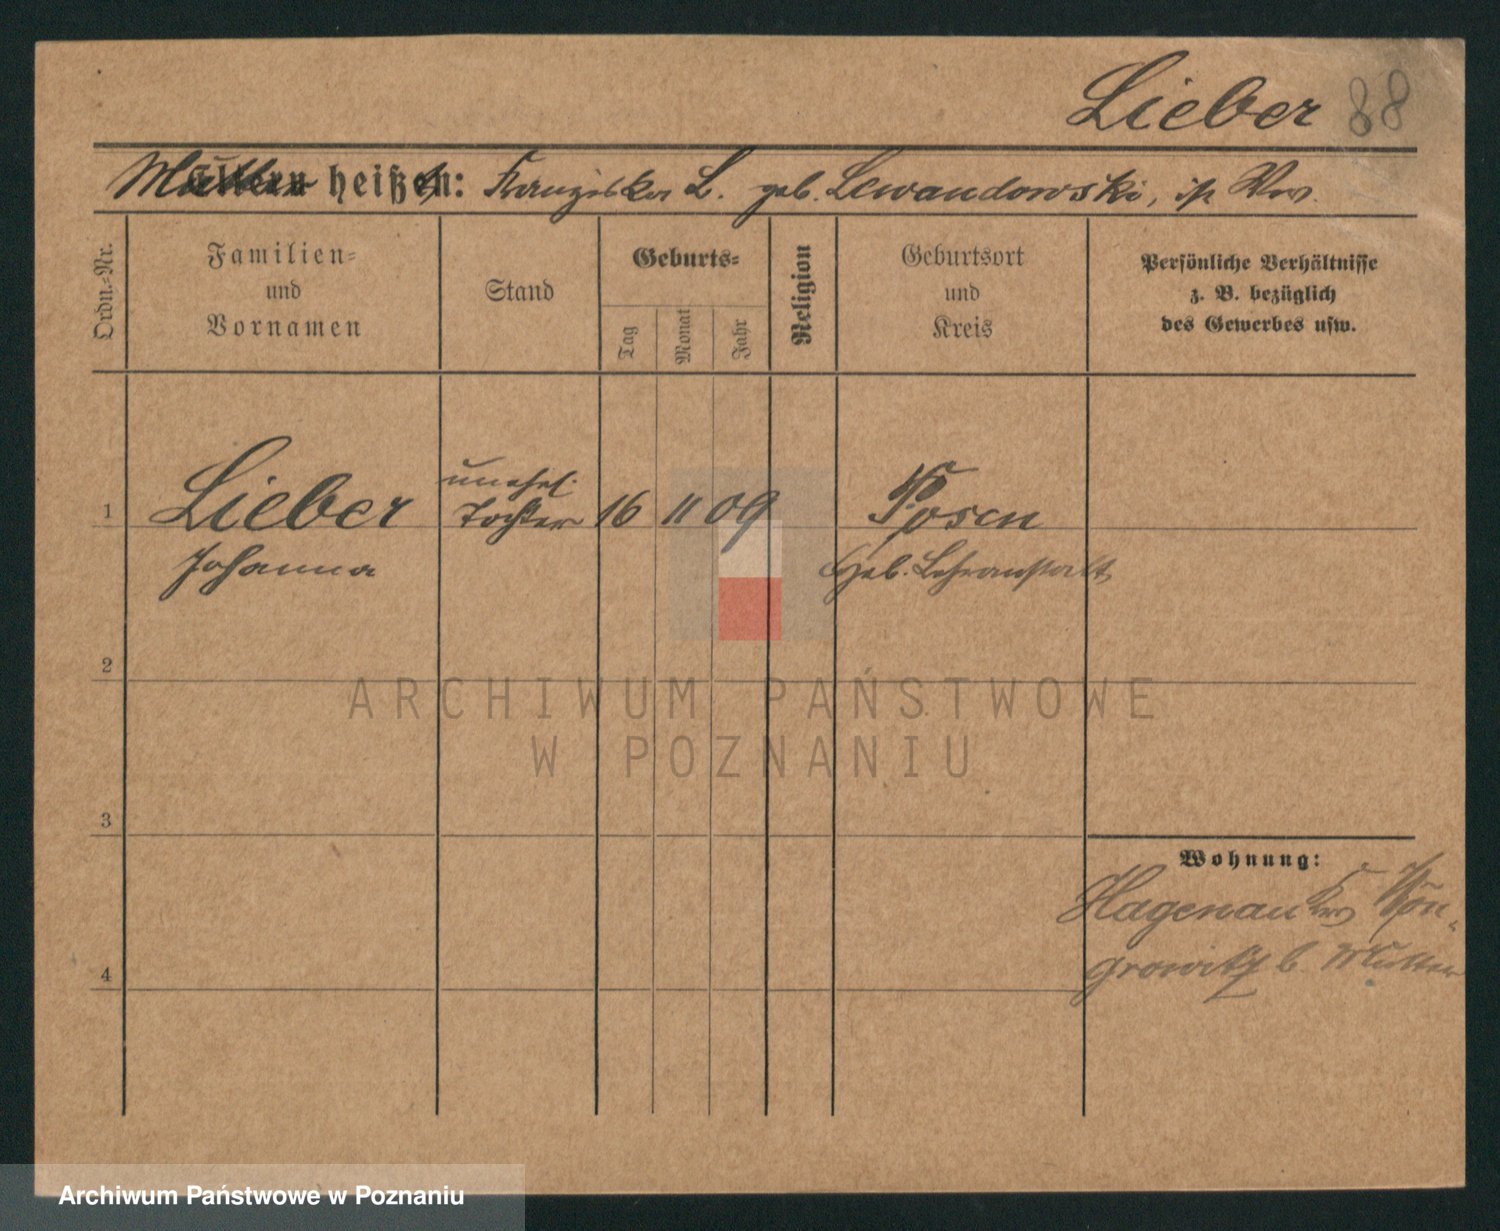 Lieber 88
Mutter heißt: Franziska L. geb. Lewandowski, ist Ww.
Ordn.-Nr.
Familien-
und
Vornamen
Stand
Geburts-
Tag
Monat
Jahr
Religion
Geburtsort
und
Kreis
Persönliche Verhältnisse
z. B. bezüglich
des Gewerbes usw.
unehel.
1 Lieber Tochter 16 11 09 Posen
Johanna Heb. Lehranstalt
2
ARCHIWUM PAŃSTWOWE
W POZNANIU
3
Wohnung:
Hagenau Krs Won-
growitz b. Mutter
4
Archiwum Państwowe w Poznaniu